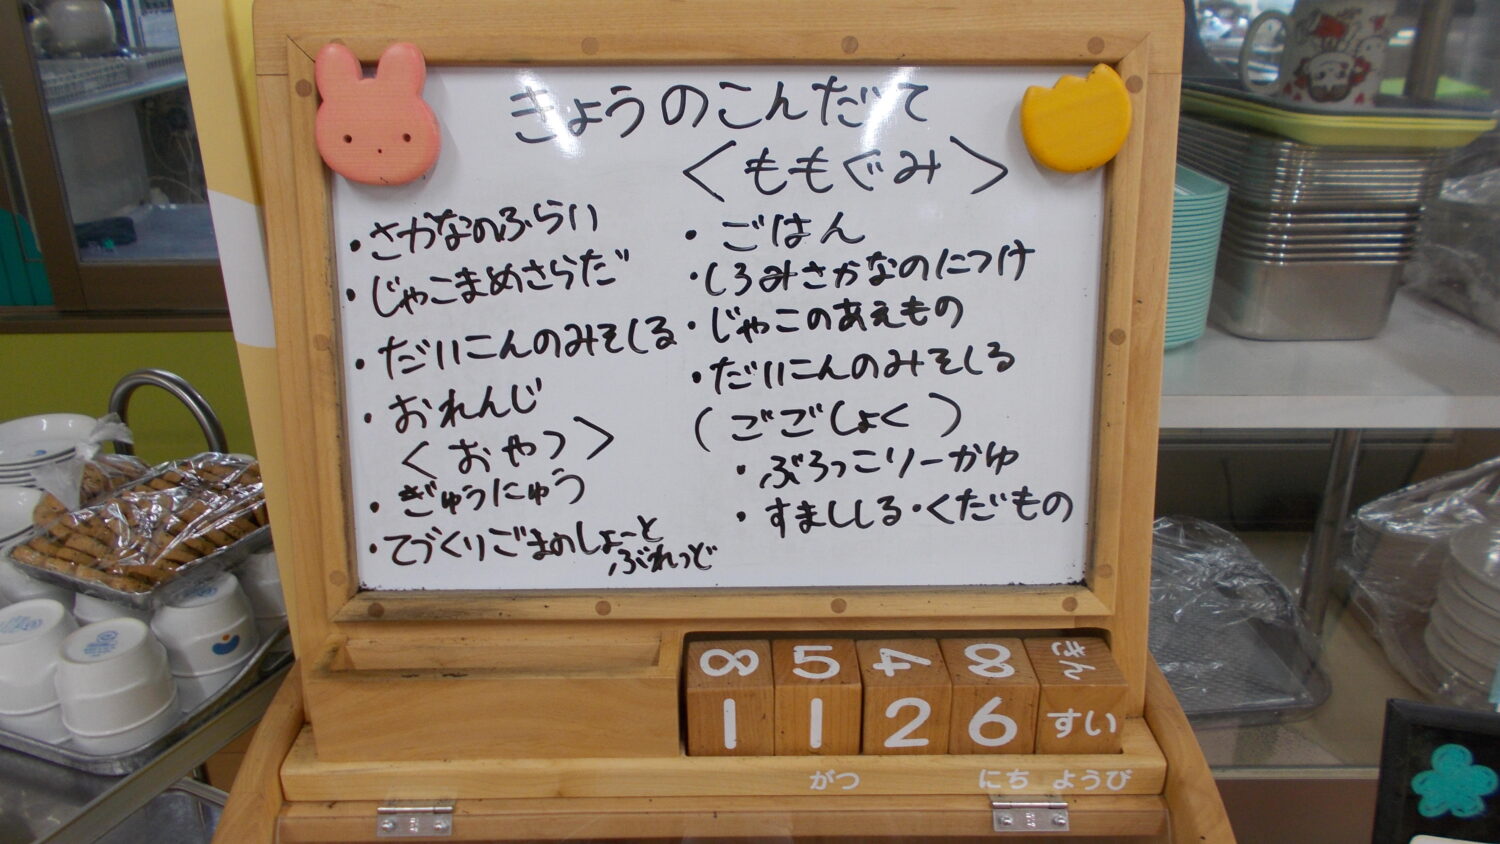 きょうのこんだて
<ももぐみ>
・さかなのふらい
・じゃこまめさらだ
・だいこんのみそしる
・おれんじ
<おやつ>
・ぎゅうにゅう
・てづくりごまのしょーと
ぶれっど
・ごはん
・しろみさかなのにつけ
・じゃこのあえもの
・だいこんのみそしる
(ごごしょく)
・ぶろっこりーがゆ
・すましじる・くだもの
8 5 4 8 きん
1 1 2 6 すい
がつ にち ようび